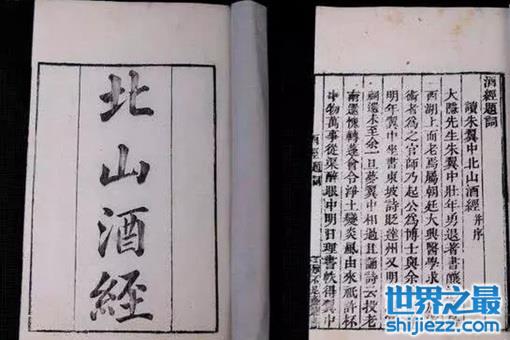 北山酒經
酒經題詞
讀朱翼中北山酒經 并序
大隱先生朱翼中壯年勇退著書釀
西湖上而老焉屬朝廷大興醫學求
術者為之官師乃起公為博士與余
明年翼中坐書東坡詩貶達州又明
祠還未至余一旦夢翼中相過且誦詩云投老
南還愧轉蓬會令淨土變炎風由來祇許杯
中物萬事從渠醉眼中明日理書帙得翼中
酒經題詞
世界之最
shijiezz.com